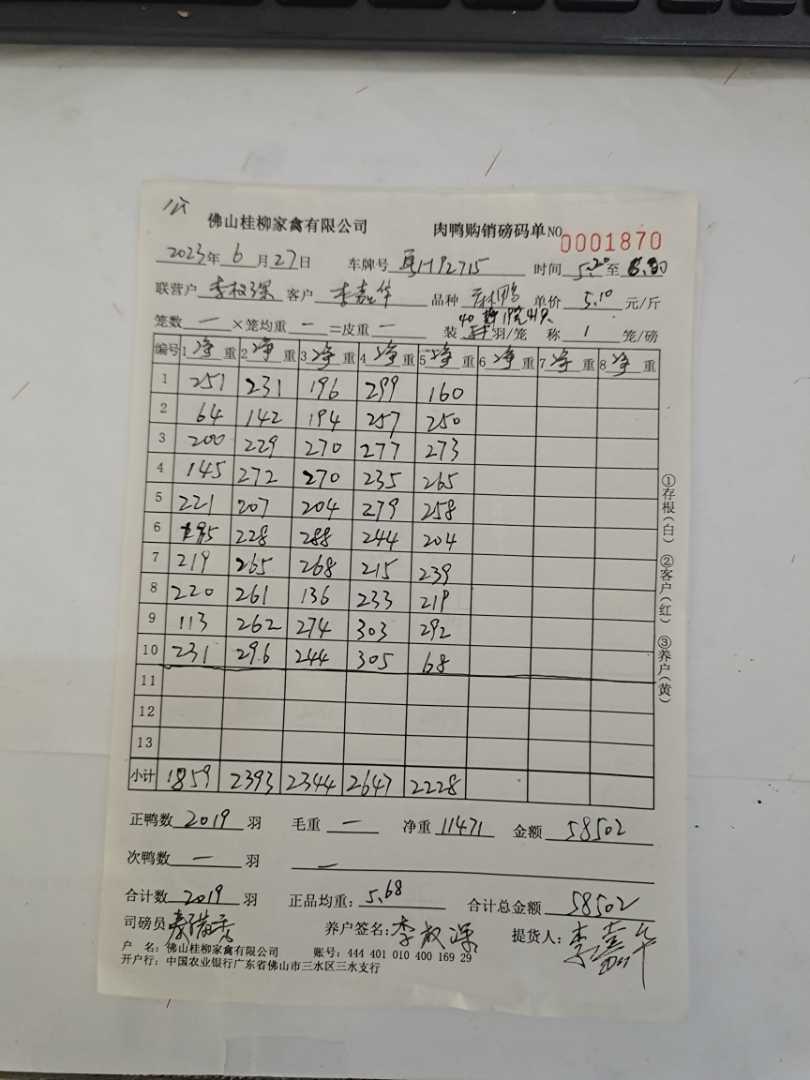 佛山桂柳家禽有限公司 肉鸭购销磅码单 NO 0001870
2023年 6 月 27 日 车牌号 粤H92715 时间 5.20 至
联营户 李权深 客户 李嘉华 品种 鸭 单价 5.10 元/斤
笼数 一 ×笼均重 一 =皮重 一 装 羽/笼 称 1 笼/磅
编号 1 净 重 2 净 重 3 净 重 4 净 重 5 净 重 6 净 重 7 净 重 8 净 重
1 251 231 196 299 160
2 64 142 194 257 250
3 200 229 270 277 273
4 145 272 270 235 265
5 221 207 204 279 258
6 195 228 288 244 204
7 219 265 268 215 239
8 220 261 136 233 219
9 113 262 274 303 292
10 231 296 244 305 68
11
12
13
小计 1859 2393 2344 2647 2228
正鸭数 2019 羽 毛重 一 净重 11471 金额 58502
次鸭数 一 羽 一
合计数 2019 羽 正品均重: 5.68 合计总金额 58502
司磅员 养户签名: 李权深 提货人: 李嘉华
户 名: 佛山桂柳家禽有限公司 账号: 444 401 010 400 169 29
开户行: 中国农业银行广东省佛山市三水区三水支行
①存根(白) ②客户(红) ③养户(黄)